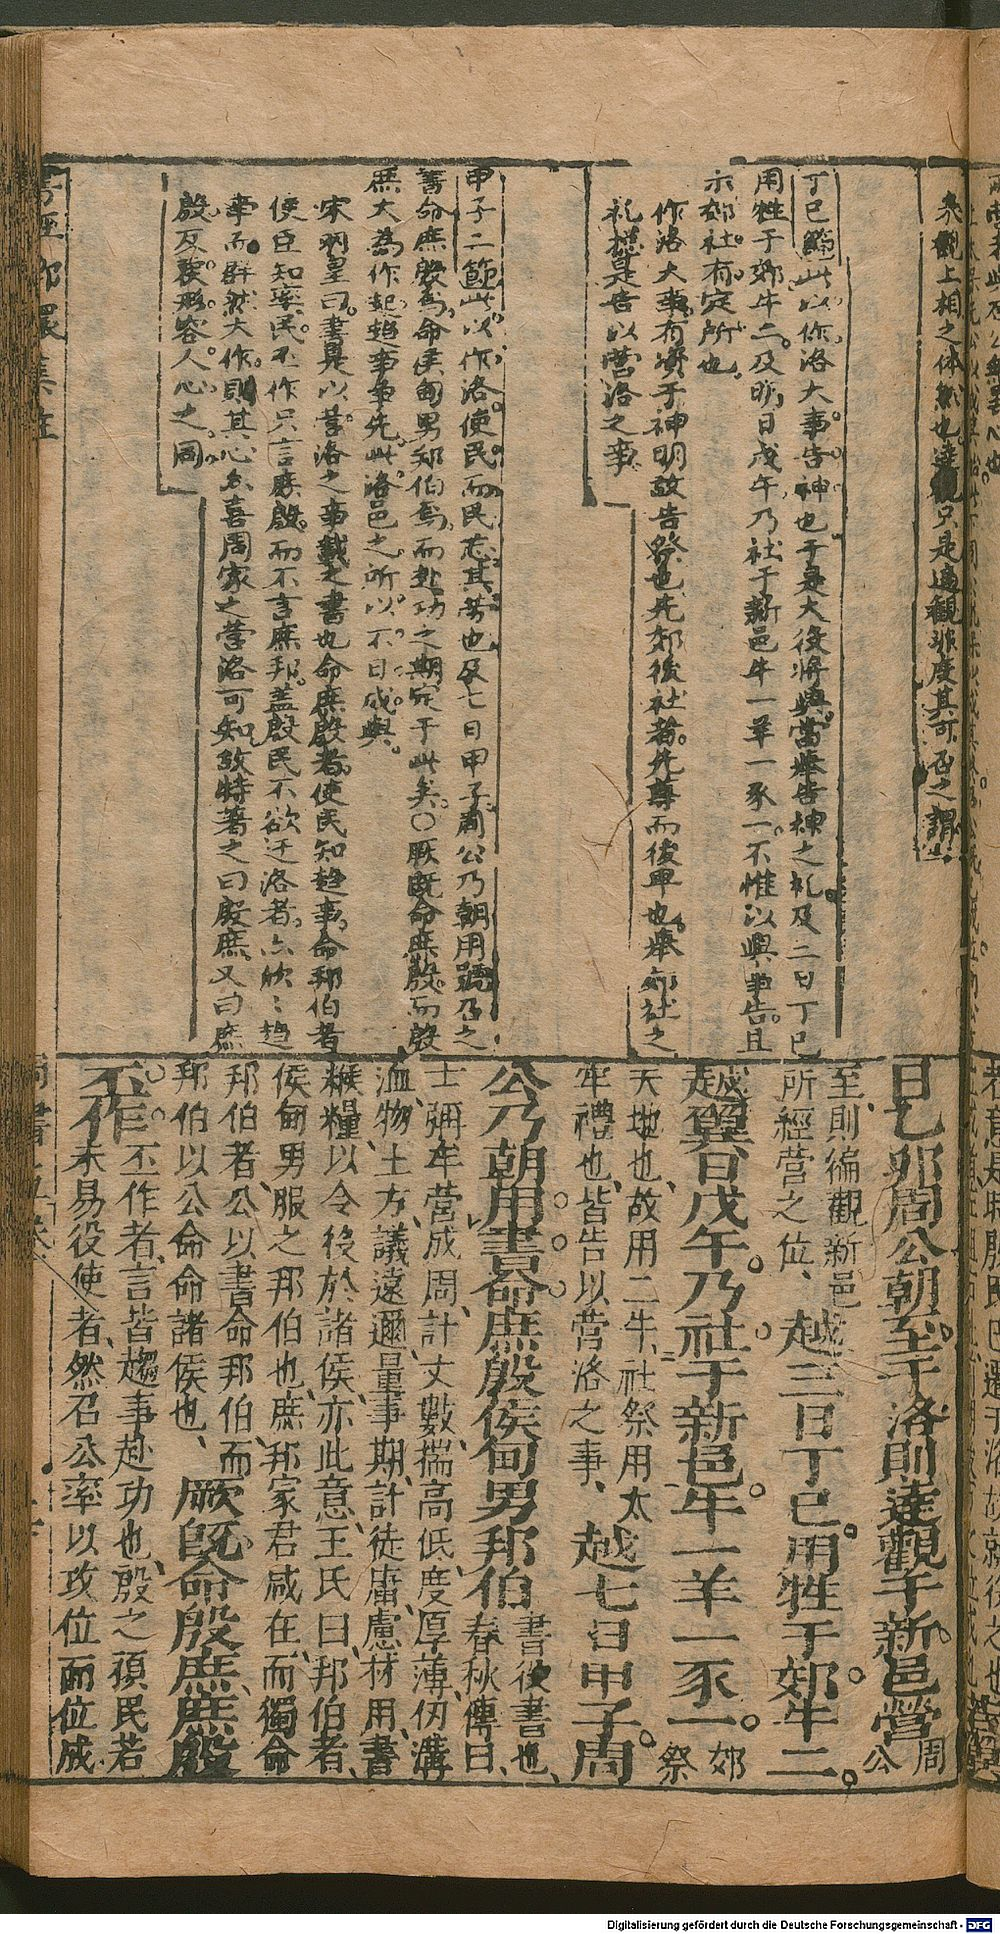 來觀上相之体然也達觀只是遍觀非度其可否之謂
丁巳節此以作洛大事告神也于是大役將興當舉告神之礼及三日丁巳
用牲于郊牛二及明日戊午乃社于新邑牛一羊一豕一不惟以興事告且
示郊社有定所也
作洛大事有資于神明故告祭也先郊後社者先尊而後卑也舉郊社之
礼想是告以营洛之事
甲子二節此以作洛使民而民忘其劳也及七日甲子周公乃朝用書
書命庶殷焉命侯甸男邦伯焉而赴功之期定于此矣○厥既命庶殷而殷
庶大為作起趋事争先此洛邑之所以不日成與
書是以营洛之事載之書也命庶殷者使民知趋事命邦伯者
使臣知率民丕作只言庶殷而不言庶邦蓋殷民不欲迁洛者
牽而群然大作則其心亦喜周家之营洛可知故特著之曰殷庶又曰庶
殷反覆形容人心之同
日乙卯周公朝至于洛則達觀于新邑營周公
至則徧觀新邑
所經營之位、越三日丁巳用牲于郊牛二
越翼日戊午乃社于新邑牛一羊一豕一郊祭
天地也、故用二牛、社祭用太
牢禮也、皆告以营洛之事、越七日甲子周
公乃朝用書命庶殷侯甸男邦伯書役書也、春秋傳曰、
士彌牟营成周、計丈數揣高低、度厚薄、仞溝
洫、物土方、議遠邇、量事期、計徒庸、慮材用、書
糇糧、以令役於諸侯、亦此意、王氏曰、邦伯者、
侯甸男服之邦伯也、庶邦冢君咸在、而獨命
邦伯者、公以書命邦伯、而
邦伯以公命命諸侯也、厥既命殷庶庶殷
丕作丕作者、言皆趨事赴功也、殷之頑民若
未易役使者、然召公率以攻位而位成